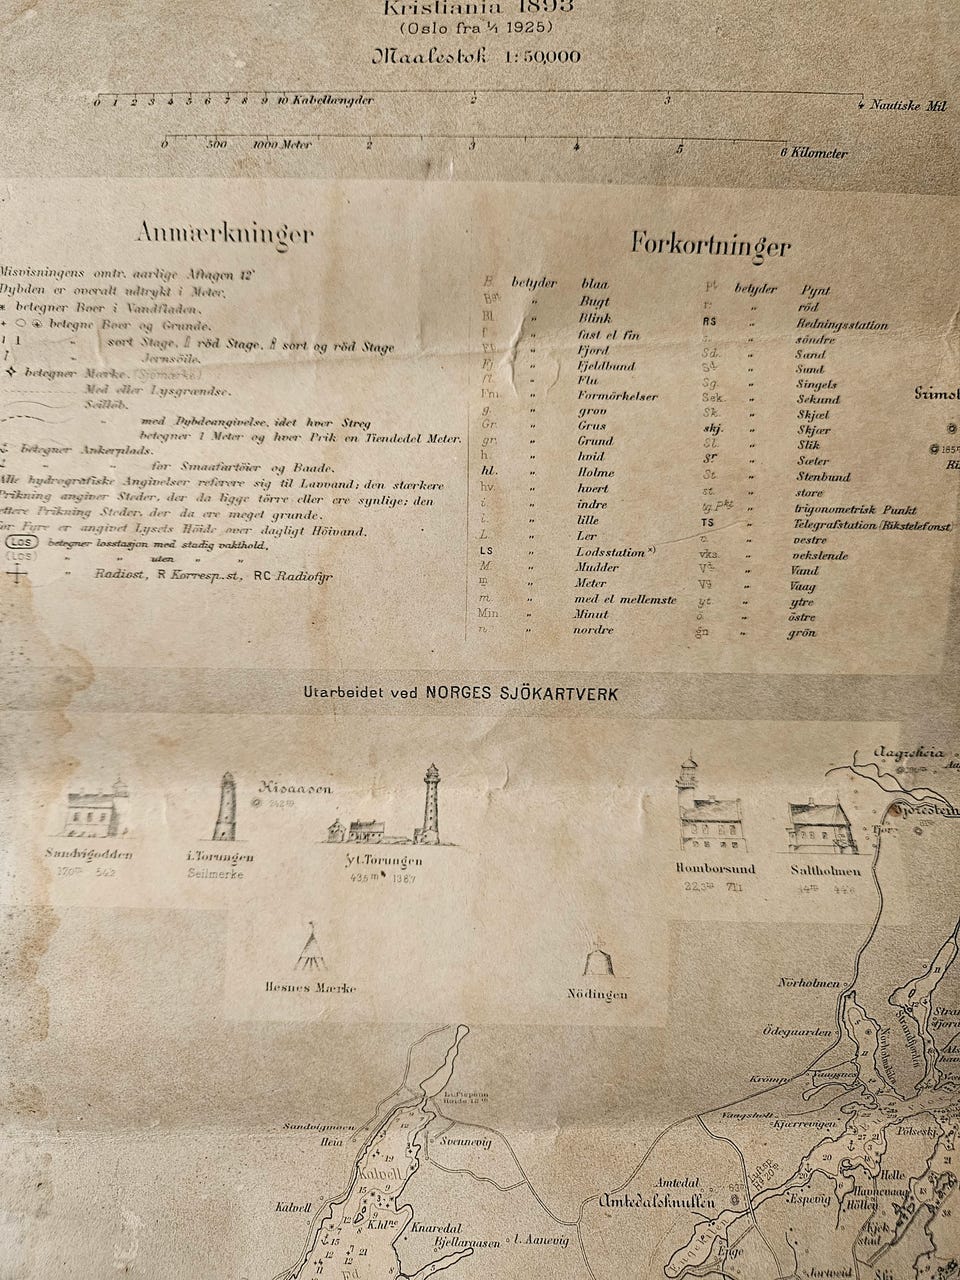 Kristiania 1893
(Oslo fra 1/1 1925)
Maalestok 1:50,000
0 1 2 3 4 5 6 7 8 9 10 Kabellængder 2 3 4 Nautiske Mil
0 500 1000 Meter 2 3 4 5 6 Kilometer
Anmærkninger
Misvisningens omtr. aarlige Aftagen 12'
Dybden er overalt udtrykt i Meter.
betegner Boer i Vandfladen.
betegne Boer og Grunde.
" sort Stage, röd Stage, sort og röd Stage
" Jernsöile.
betegner Mærke. (Sjömærke)
Med eller Lysgrændse.
Seillöb.
" med Dybdeangivelse, idet hver Streg
betegner 1 Meter og hver Prik en Tiendedel Meter.
betegner Ankerplads.
" " for Smaafartöier og Baade.
Alle hydrografiske Angivelser referere sig til Lavvand; den stærkere
Prikning angiver Steder, der da ligge törre eller ere synlige; den
lettere Prikning Steder, der da ere meget grunde.
For Fyre er angivet Lysets Höide over dagligt Höivand.
LOS betegner losstasjon med stadig vakthold,
(LOS) " " uten " "
" Radiost, R Korresp.st, RC Radiofyr
Forkortninger
B. betyder blaa
Bgt " Bugt
Bl. " Blink
f. " fast el fin
Fj. " Fjord
Fj. " Fjeldbund
fl. " Flu
Fm. " Formörkelser
g. " grov
Gr. " Grus
gr. " Grund
h. " hvid
hl. " Holme
hv. " hvert
i. " indre
l. " lille
L. " Ler
LS " Lodsstation x)
M. " Mudder
m. " Meter
m. " med el mellemste
Min. " Minut
n. " nordre
Pt. betyder Pynt
r. " röd
RS " Redningsstation
s. " söndre
Sd. " Sand
Sd. " Sund
Sg. " Singels
Sek. " Sekund
Sk. " Skjæl
skj. " Skjær
Sl. " Slik
sr " Sæter
St. " Stenbund
st. " store
tg. Pkt " trigonometrisk Punkt
TS " Telegrafstation (Rikstelefonst)
v. " vestre
vks. " vekslende
Vd " Vand
Vg " Vaag
yt. " ytre
ö. " östre
gn " grön
Utarbeidet ved NORGES SJÖKARTVERK
Sandvigodden
17,0m 54,2
i.Torungen
Seilmerke
Kisaasen
242m
yt.Torungen
43,5m 138,7
Homborsund
22,3m 71,1
Saltholmen
14m 44,6
Hesnes Mærke
Nödingen
Aagreheia
Fjörestein
Tjor
Grimst
Norholmen
Ödegaarden
Norholmskilen
Strandfjorden
Krömp
Vaagsnes
Vaagsholt
Kjærrevigen
Pölseskj.
Luftsphan
Höide 18m
Sandvigmoen
Heia
Svennevig
Kalvell
Kalvell
K.hlne
Knaredal
Bjellaraasen
l. Aanevig
Amtedal
Amtedalsknutten
Luftsp.
H. 20m
Espevig
Helle
Havnevaag
Höllen
Kjek
stad
Engekilen
Enge
Jortveid